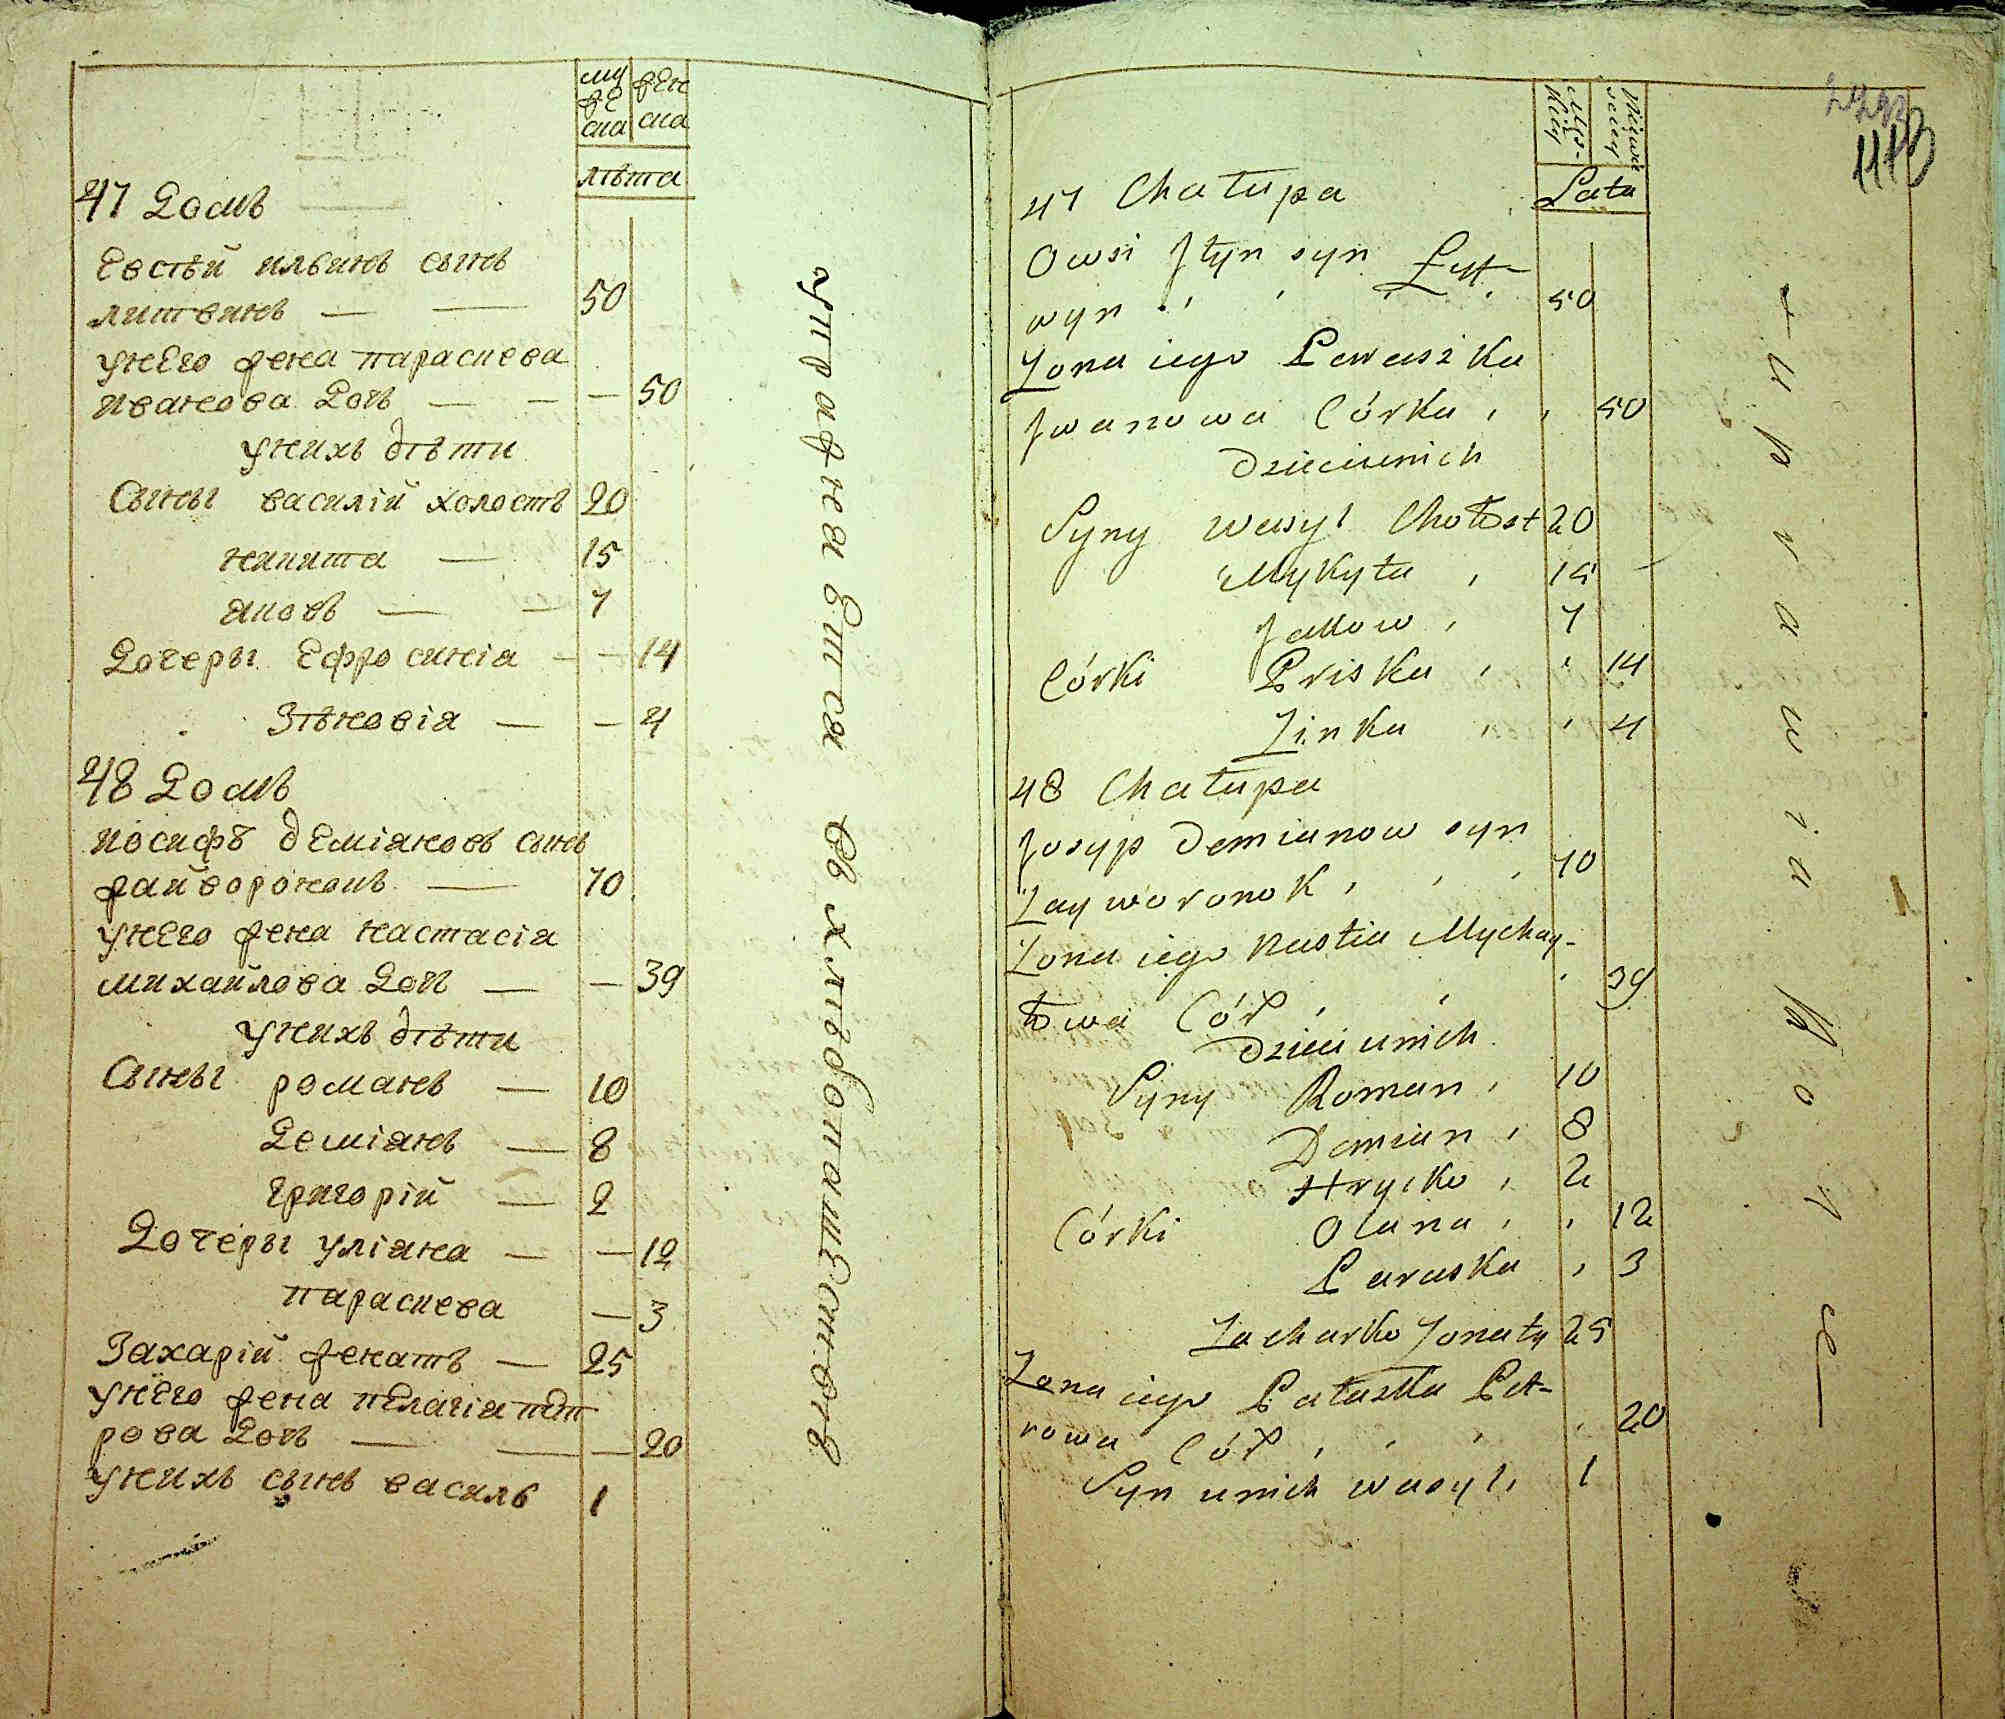 му
же
ска
жен
ска
лѣта
47 Домъ
Евстѣй ильинъ сынъ
литвинъ — — 50
унего жена параскева
иванова Доч — — — 50
унихъ дѣти
Сыны василій холостъ 20
никита — 15
яковъ — — 7
Дочеры Ефросинія — — 14
Зѣновія — — 4
48 Домъ
иосифъ демiановъ сынъ
жайворонокъ — 70
унего жена настасія
михайлова Доч — — 39
унихъ дѣти
Сыны романъ — 10
Деміянъ — 8
григорій — 2
Дочеры уліяна — — 12
параскева — 3
Захарій женатъ — 25
унего жена пелагія пет
рова Доч — — — 20
унихъ сынъ василь 1
упражнаетса въ хлѣбопашествѣ
Męs-
kiey
Niewie
sciey
Lata
1113
47 Chałupa
Owsi Jłyn syn Łytt-
wyn 50
Zona iego Parasika
Jwanowa Córka 50
Dzieciunich
Syny wasyl Chołost 20
Mykyta 15
Jakow 7
Córki Priska 14
Zinka 4
48 Chałupa
Josyp Demianow syn
Zayworonok 70
Zona iego Nastia Mychay-
łowa Cór 39
Dzieci unich
Syny Roman 10
Demian 8
Hrycko 2
Córki Olana 12
Paraska 3
Zacharko Zonaty 25
Zona iego Pałazka Pet-
rowa Cór 20
Syn unich wasyl 1
— uprawia Pole —